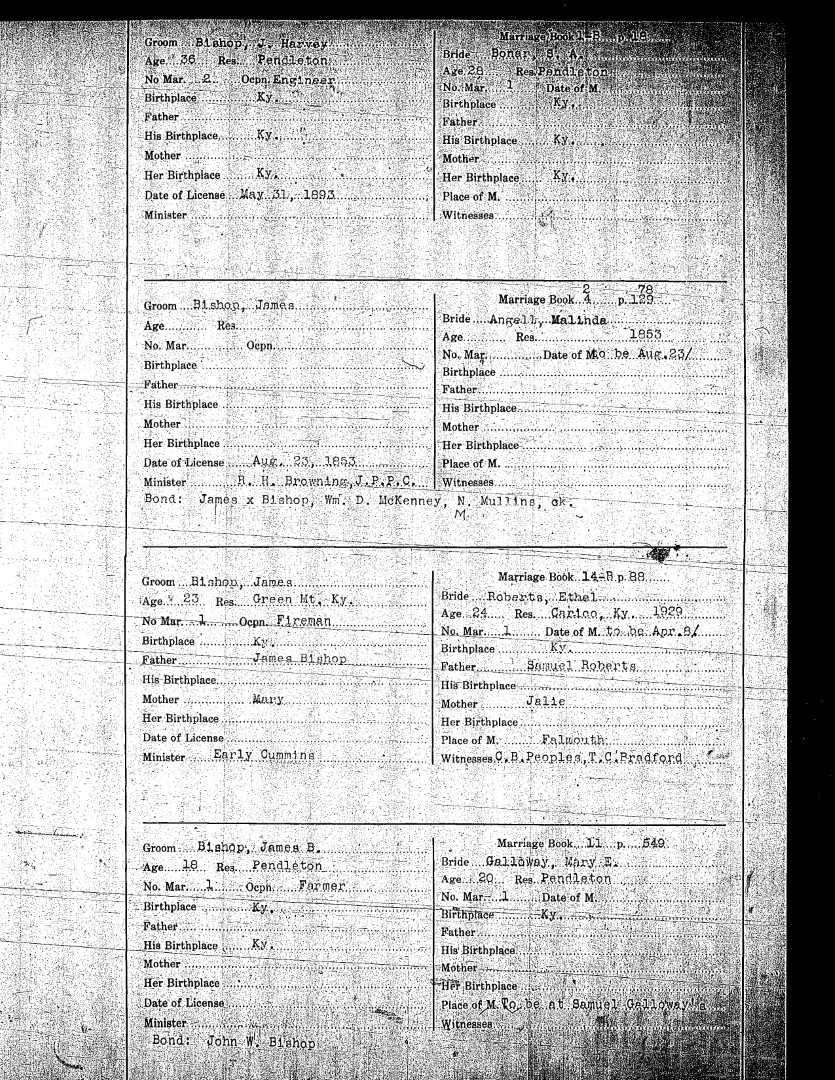 Groom Bishop, J. Harvey
Age 36 Res. Pendleton
No Mar. 2 Ocpn. Engineer
Birthplace Ky.
Father
His Birthplace Ky.
Mother
Her Birthplace Ky.
Date of License May 31, 1893
Minister
Marriage Book 1-B p. 18
Bride Bonar, S. A.
Age 28 Res. Pendleton
No. Mar. 1 Date of M.
Birthplace Ky.
Father
His Birthplace Ky.
Mother
Her Birthplace Ky.
Place of M.
Witnesses
Groom Bishop, James
Age Res.
No. Mar. Ocpn.
Birthplace
Father
His Birthplace
Mother
Her Birthplace
Date of License Aug. 23, 1853
Minister R. H. Browning, J.P.P.C.
2 78
Marriage Book 4 p. 129
Bride Angell, Malinda
Age Res. 1853
No. Mar. Date of M. to be Aug. 23/
Birthplace
Father
His Birthplace
Mother
Her Birthplace
Place of M.
Witnesses
Bond: James x Bishop, Wm. D. McKenney, N. Mullins, ck.
M
Groom Bishop, James
Age 23 Res. Green Mt. Ky.
No Mar. 1 Ocpn. Fireman
Birthplace Ky.
Father James Bishop
His Birthplace
Mother Mary
Her Birthplace
Date of License
Minister Early Cummins
Marriage Book 14-B p. 88
Bride Roberts, Ethel
Age 24 Res. Carico, Ky. 1929
No. Mar. 1 Date of M. to be Apr. 8/
Birthplace Ky.
Father Samuel Roberts
His Birthplace
Mother Jalie
Her Birthplace
Place of M. Falmouth
Witnesses C.B.Peoples, T.C.Bradford
Groom Bishop, James B.
Age 18 Res. Pendleton
No. Mar. 1 Ocpn. Farmer
Birthplace Ky.
Father
His Birthplace Ky.
Mother
Her Birthplace
Date of License
Minister
Marriage Book 11 p. 549
Bride Galloway, Mary E.
Age 20 Res. Pendleton
No. Mar. 1 Date of M.
Birthplace Ky.
Father
His Birthplace
Mother
Her Birthplace
Place of M. To be at Samuel Galloway's
Witnesses
Bond: John W. Bishop